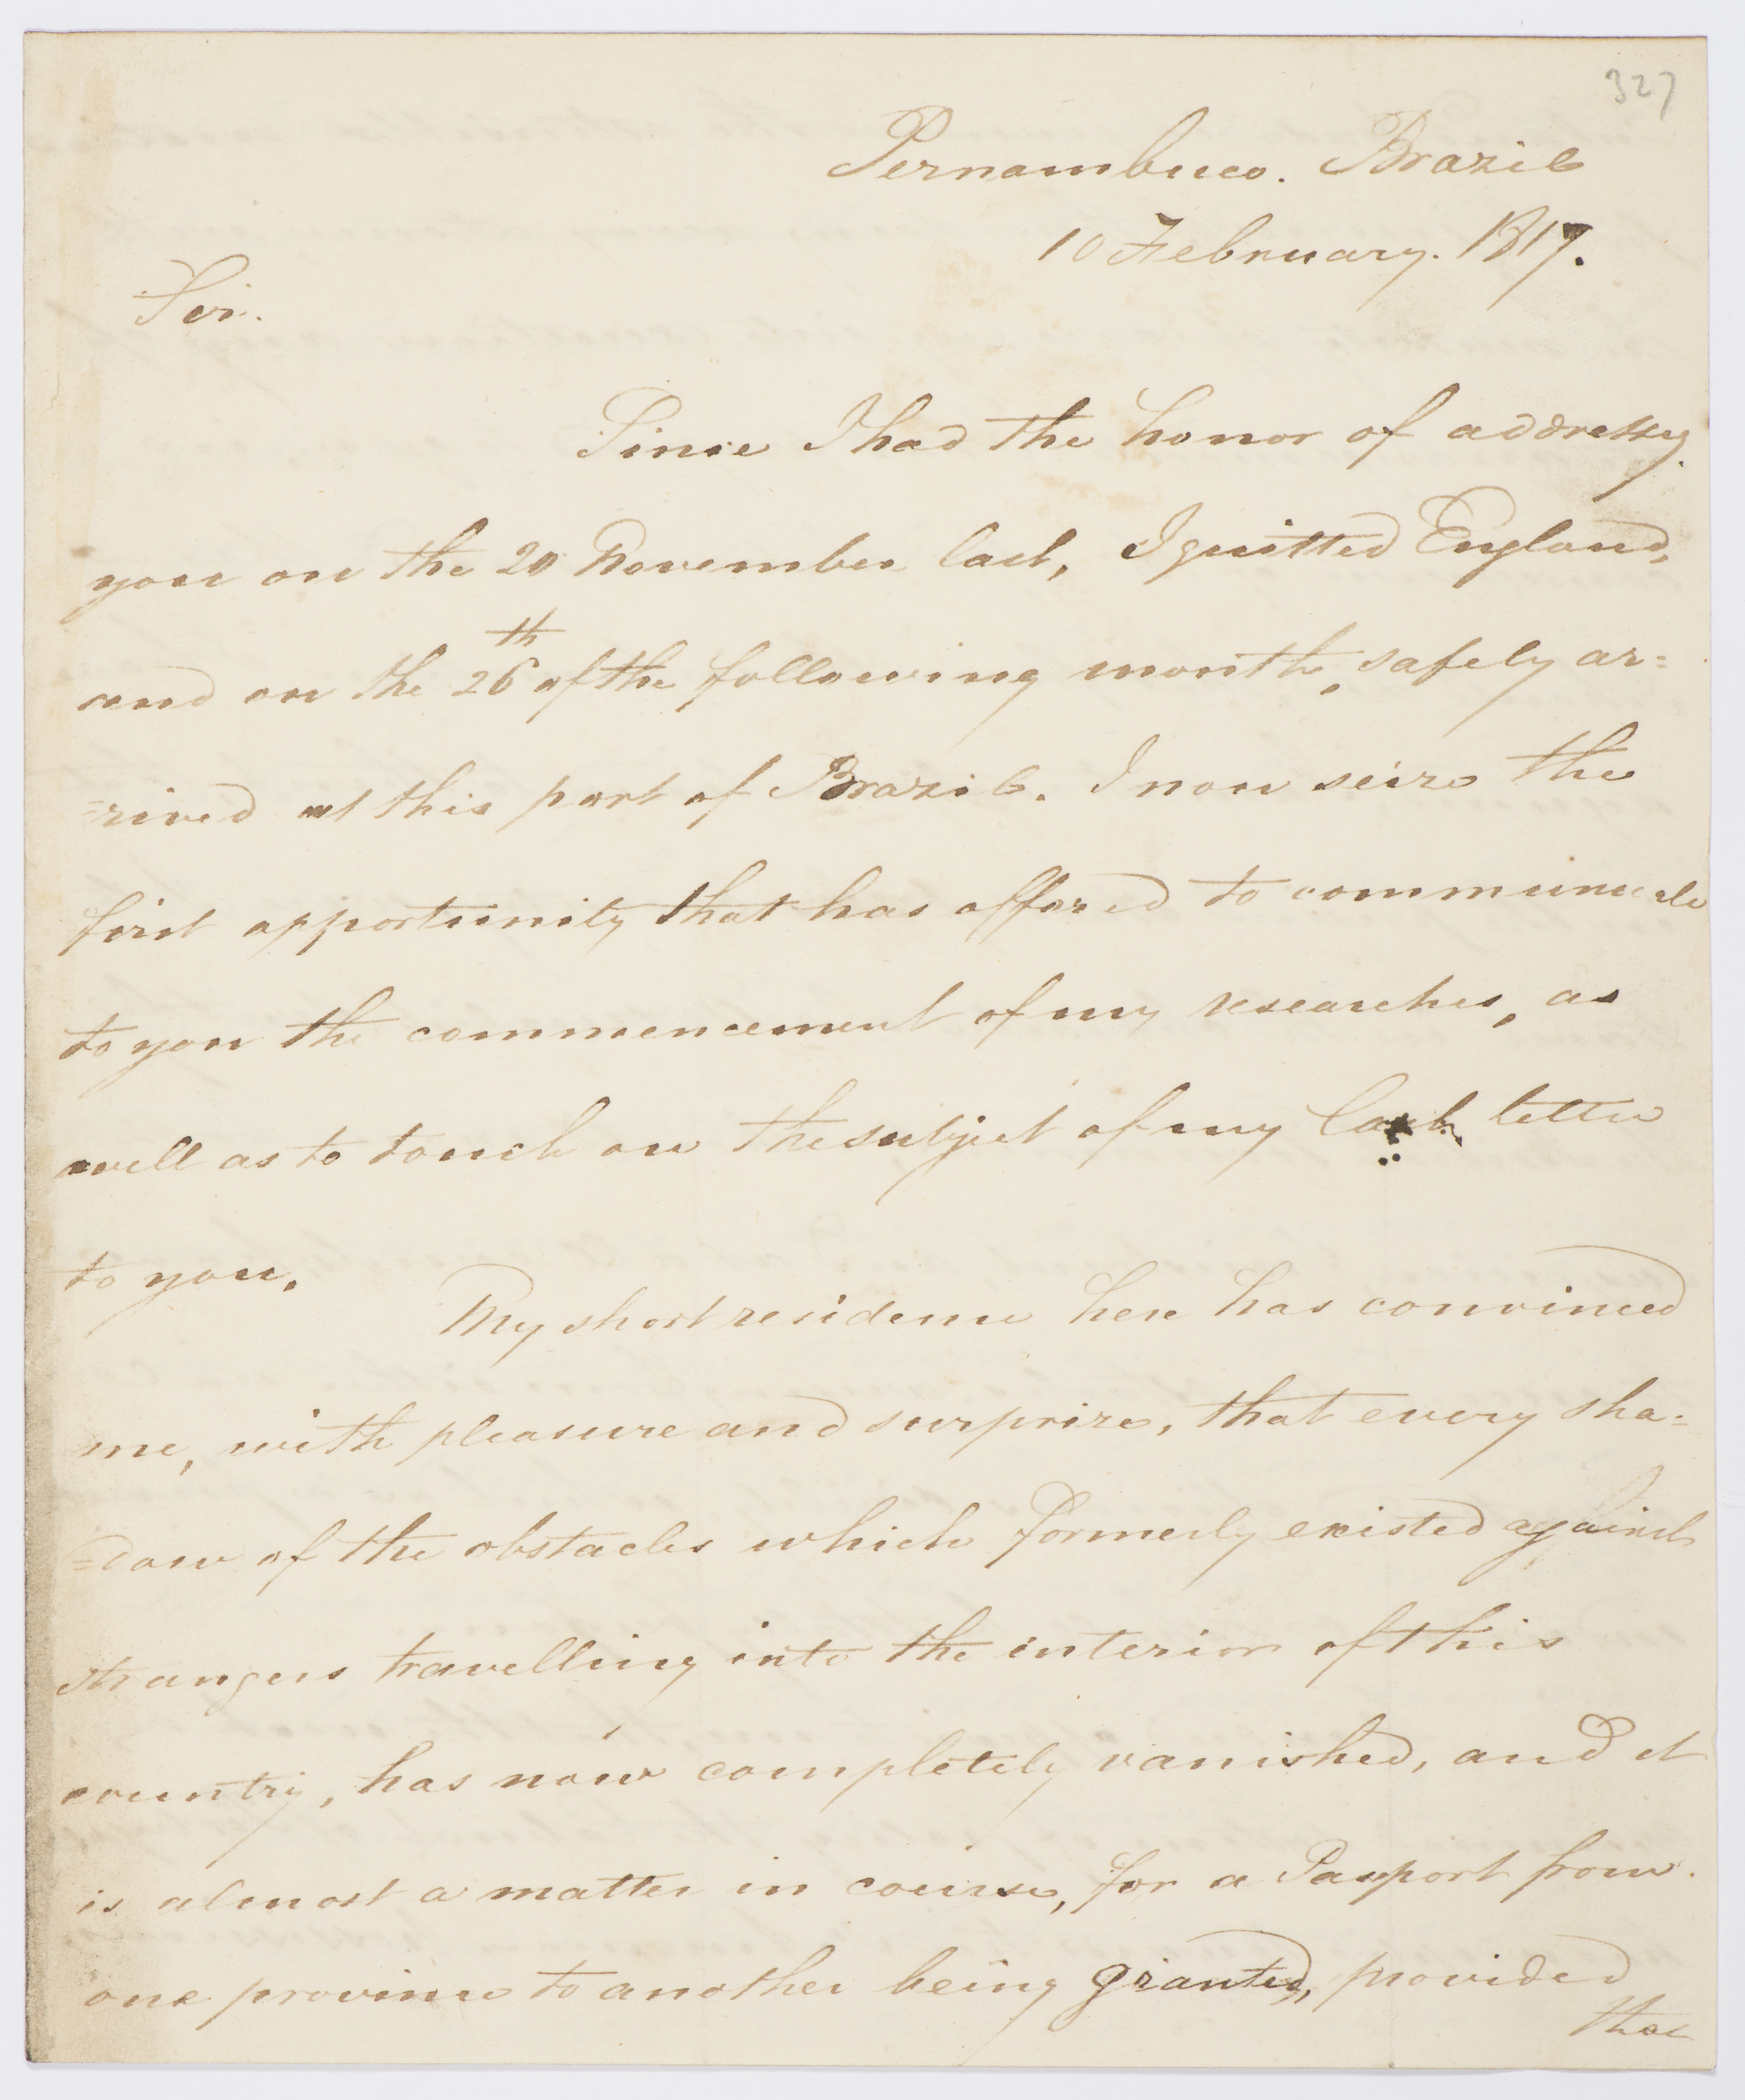 327
Pernambuco. Brazil
10 February. 1817.
Sir.
Since I had the honor of addressg
you on the 20 November last, I quitted England,
and on the 26th of the following month, safely ar=
=rived at this part of Brazil. I now seize the
first opportunity that has offered to communicate
to you the commencement of my researches, as
well as to touch on the subject of my last letter
to you.
My short residence here has convinced
me, with pleasure and surprize, that every sha=
=dow of the obstacles which formerly existed against
strangers travelling into the interior of this
country, has now completely vanished, and it
is almost a matter in course, for a Passport from
one province to another being granted, provided
that